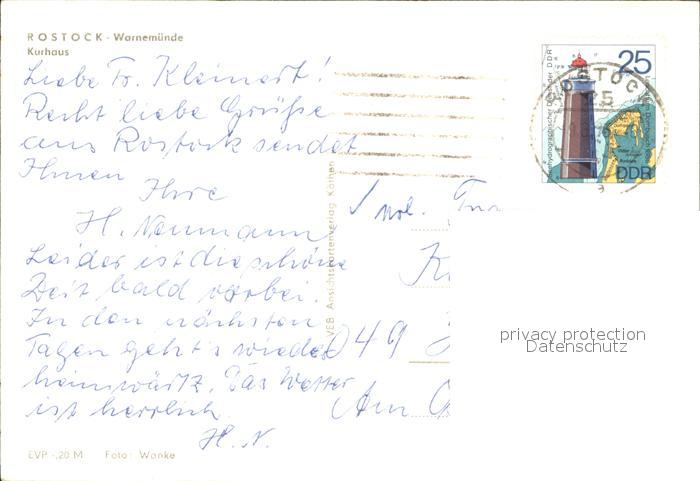 ROSTOCK - Warnemünde
Kurhaus
Liebe Fr. Kleinert!
Recht liebe Grüße
aus Rostock sendet
Ihnen
Ihre
H. Neumann
Leider ist die schöne
Zeit bald vorbei.
In den nächsten
Tagen geht's wieder
heimwärtz. Das Wetter
ist herrlich.
H. N.
EVP -,20 M Foto: Wanke
VEB Ansichtskartenverlag Köthen
25
Seehydrographischer Dienst der DDR
DDR
ROSTOCK
25
049
Am
privacy protection
Datenschutz